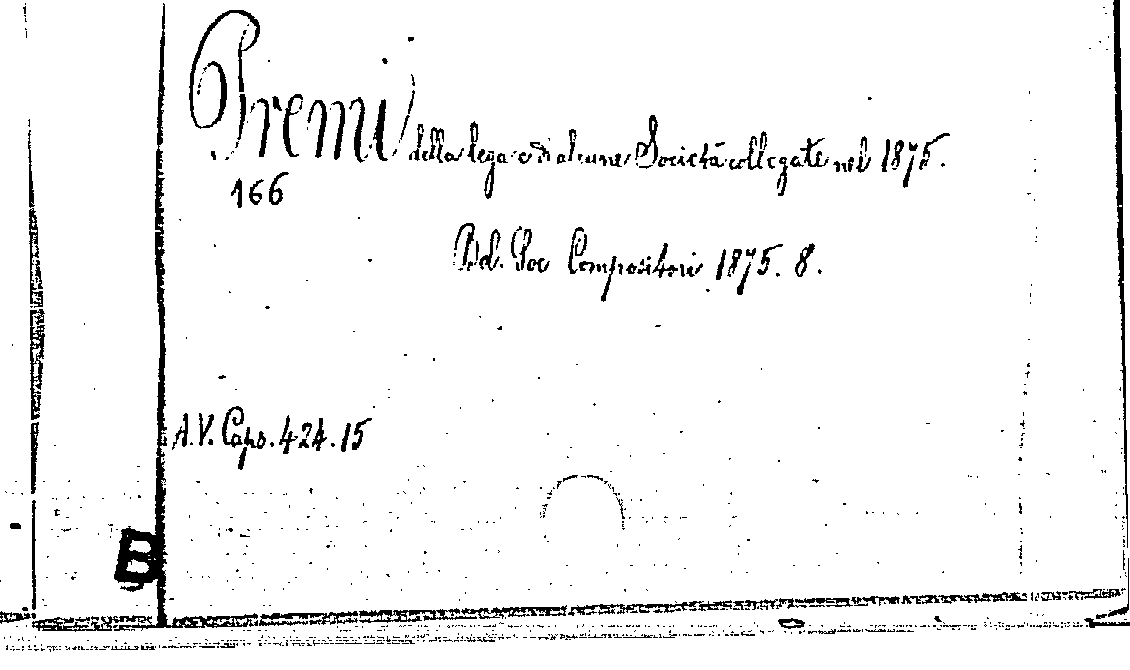 Premi della lega e di alcune Società collegate nel 1875.
166
Bol. Soc Compositori 1875. 8.
A.V. Caps. 424.15
B